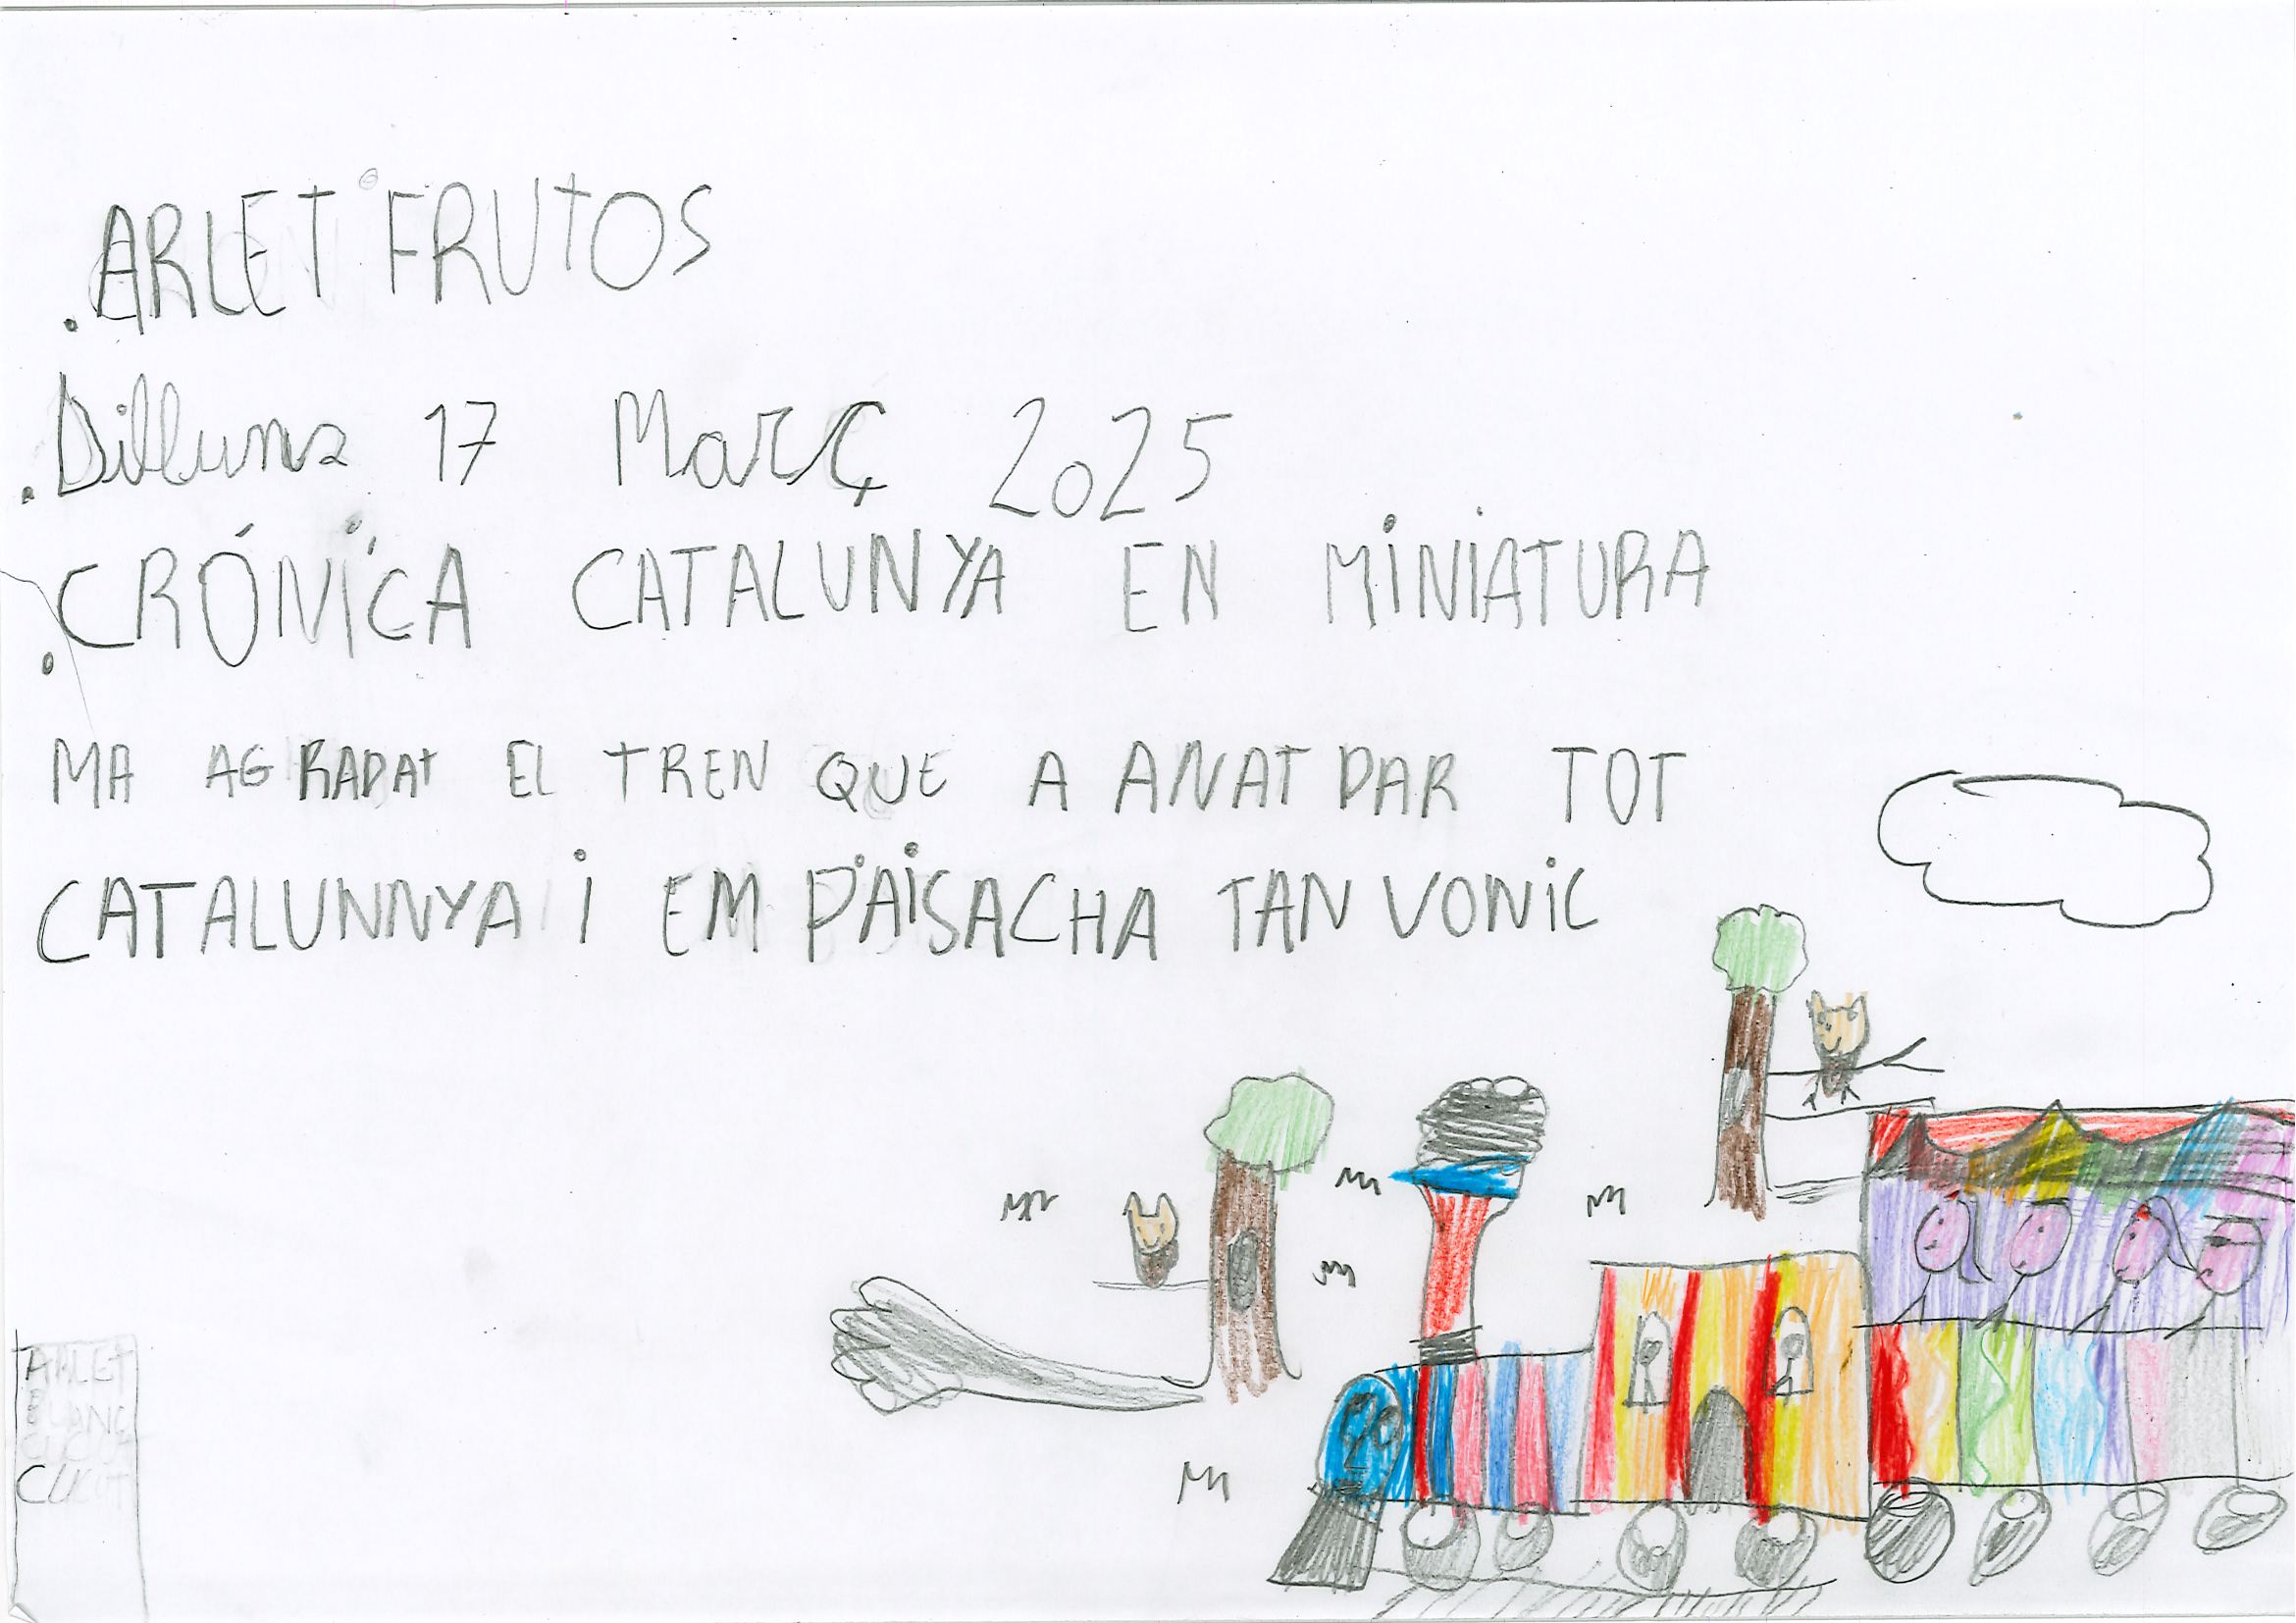 .ARLET FRUTOS
.Dilluns 17 Març 2025
.CRÓNICA CATALUNYA EN MINIATURA
MA AGRADAT EL TREN QUE A ANAT DAR TOT
CATALUNNYA i EM PAiSACHA TAN VONiC
ARLET